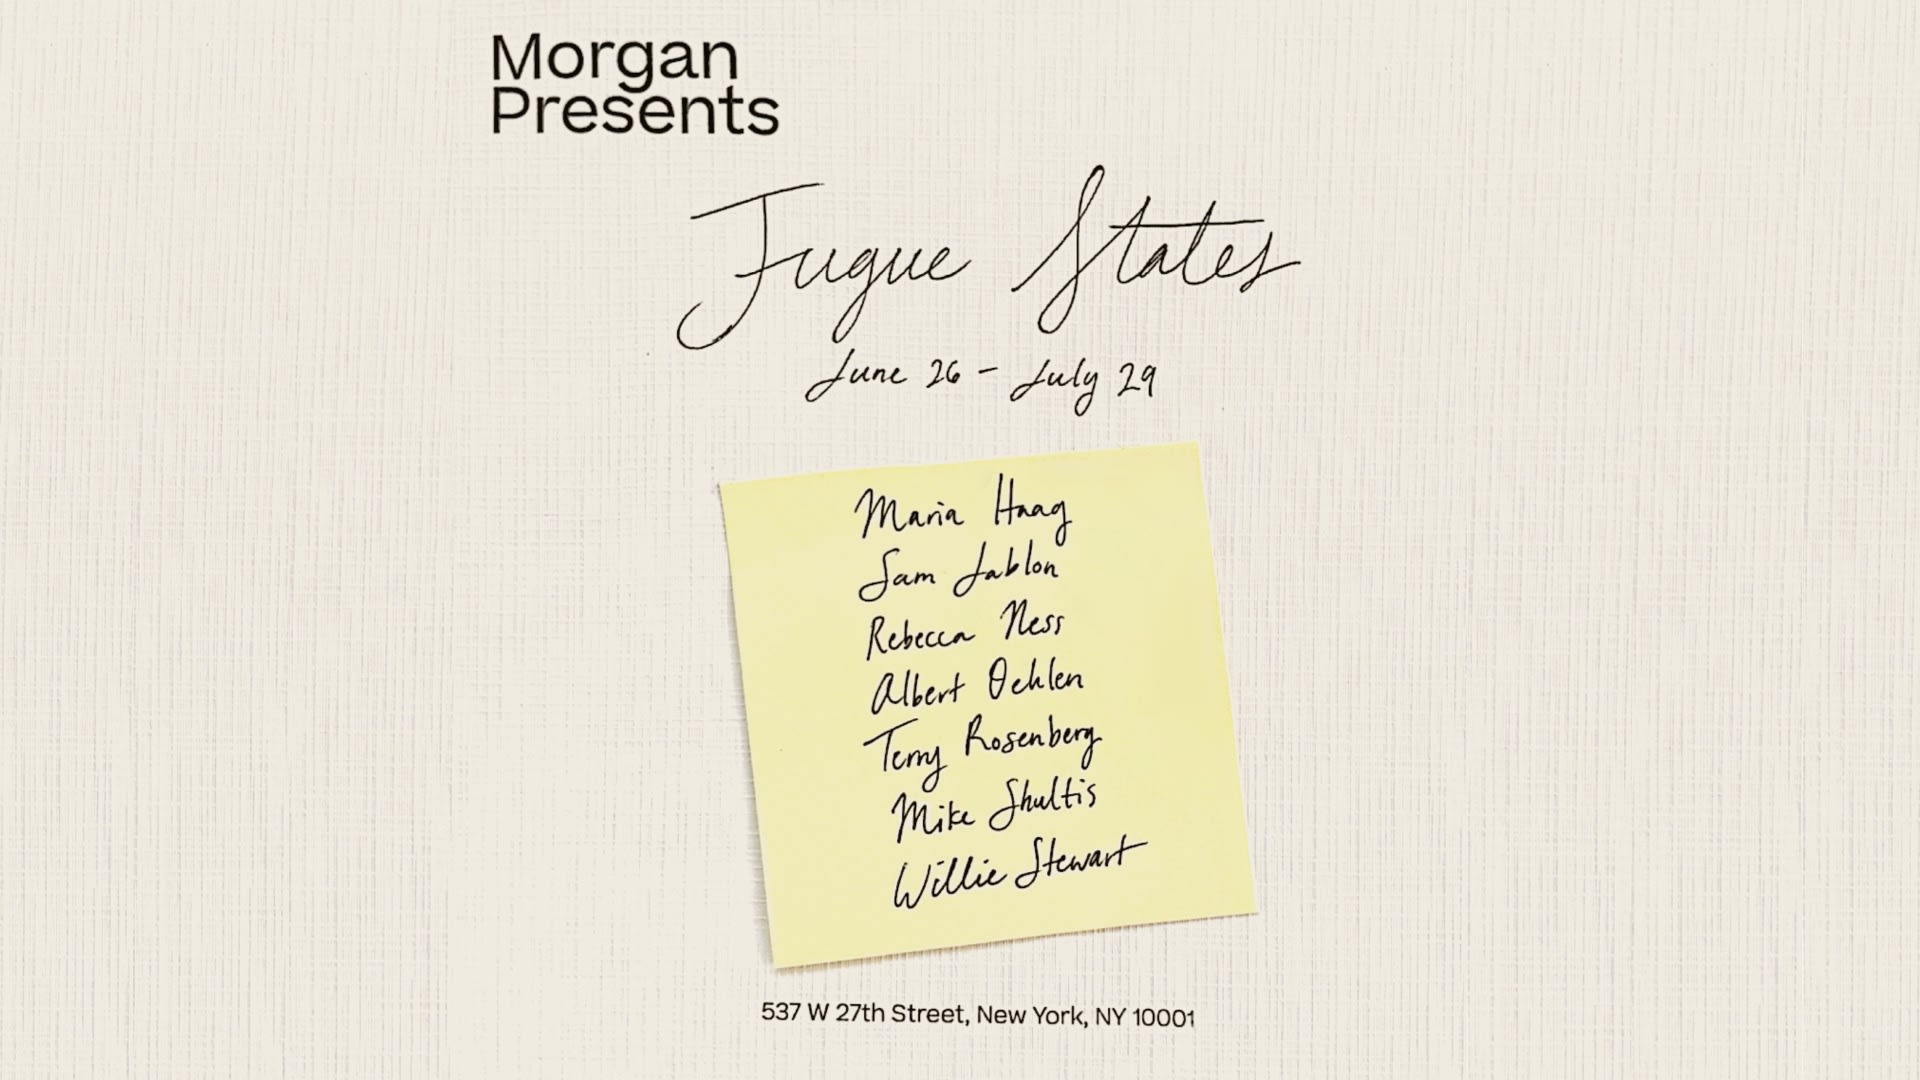 Morgan
Presents
Fugue States
June 26 - July 29
Maria Haag
Sam Jablon
Rebecca Ness
Albert Oehlen
Terry Rosenberg
Mike Shultis
Willie Stewart
537 W 27th Street, New York, NY 10001